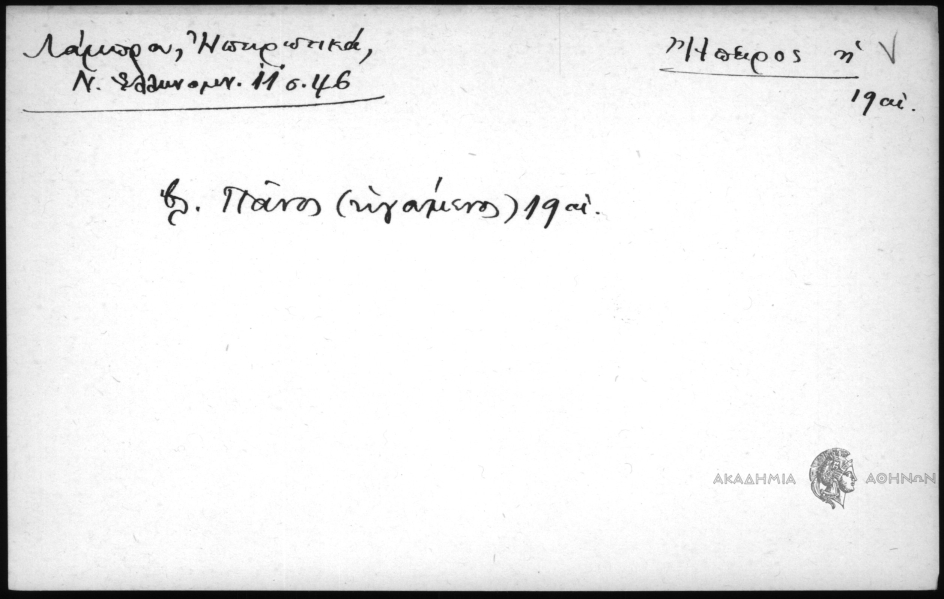 Λάμπρου, Ἠπειρωτικά,
Ν. Ἑλληνομν. 11 σ. 46
Ἤπειρος ἡ
19 αἰ.
βλ. Πάνος (ἡγούμενος) 19 αἰ.
ΑΚΑΔΗΜΙΑ ΑΘΗΝΩΝ